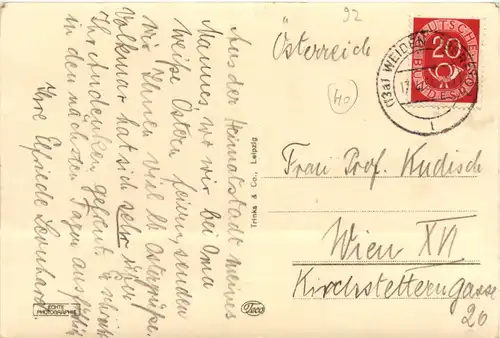 Aus der Heimatstadt meines
Mannes, wo wir bei Oma
weiße Ostern feiern, senden
wir Ihnen viel lb Ostergrüße.
Volkmar hat sich sehr über
Ihr Andenken gefreut & schreibt
in den nächsten Tagen ausführlich
Ihre Elfriede Leonhard.
ECHTE
PHOTOGRAPHIE
Trinks & Co., Leipzig
Teco
92
Österreich
40
(13a) WEIDEN
17
DEUTSCHE
BUNDESPOST
20
Frau Prof. Kudisch
Wien XVI
Kirchstetterngasse
20